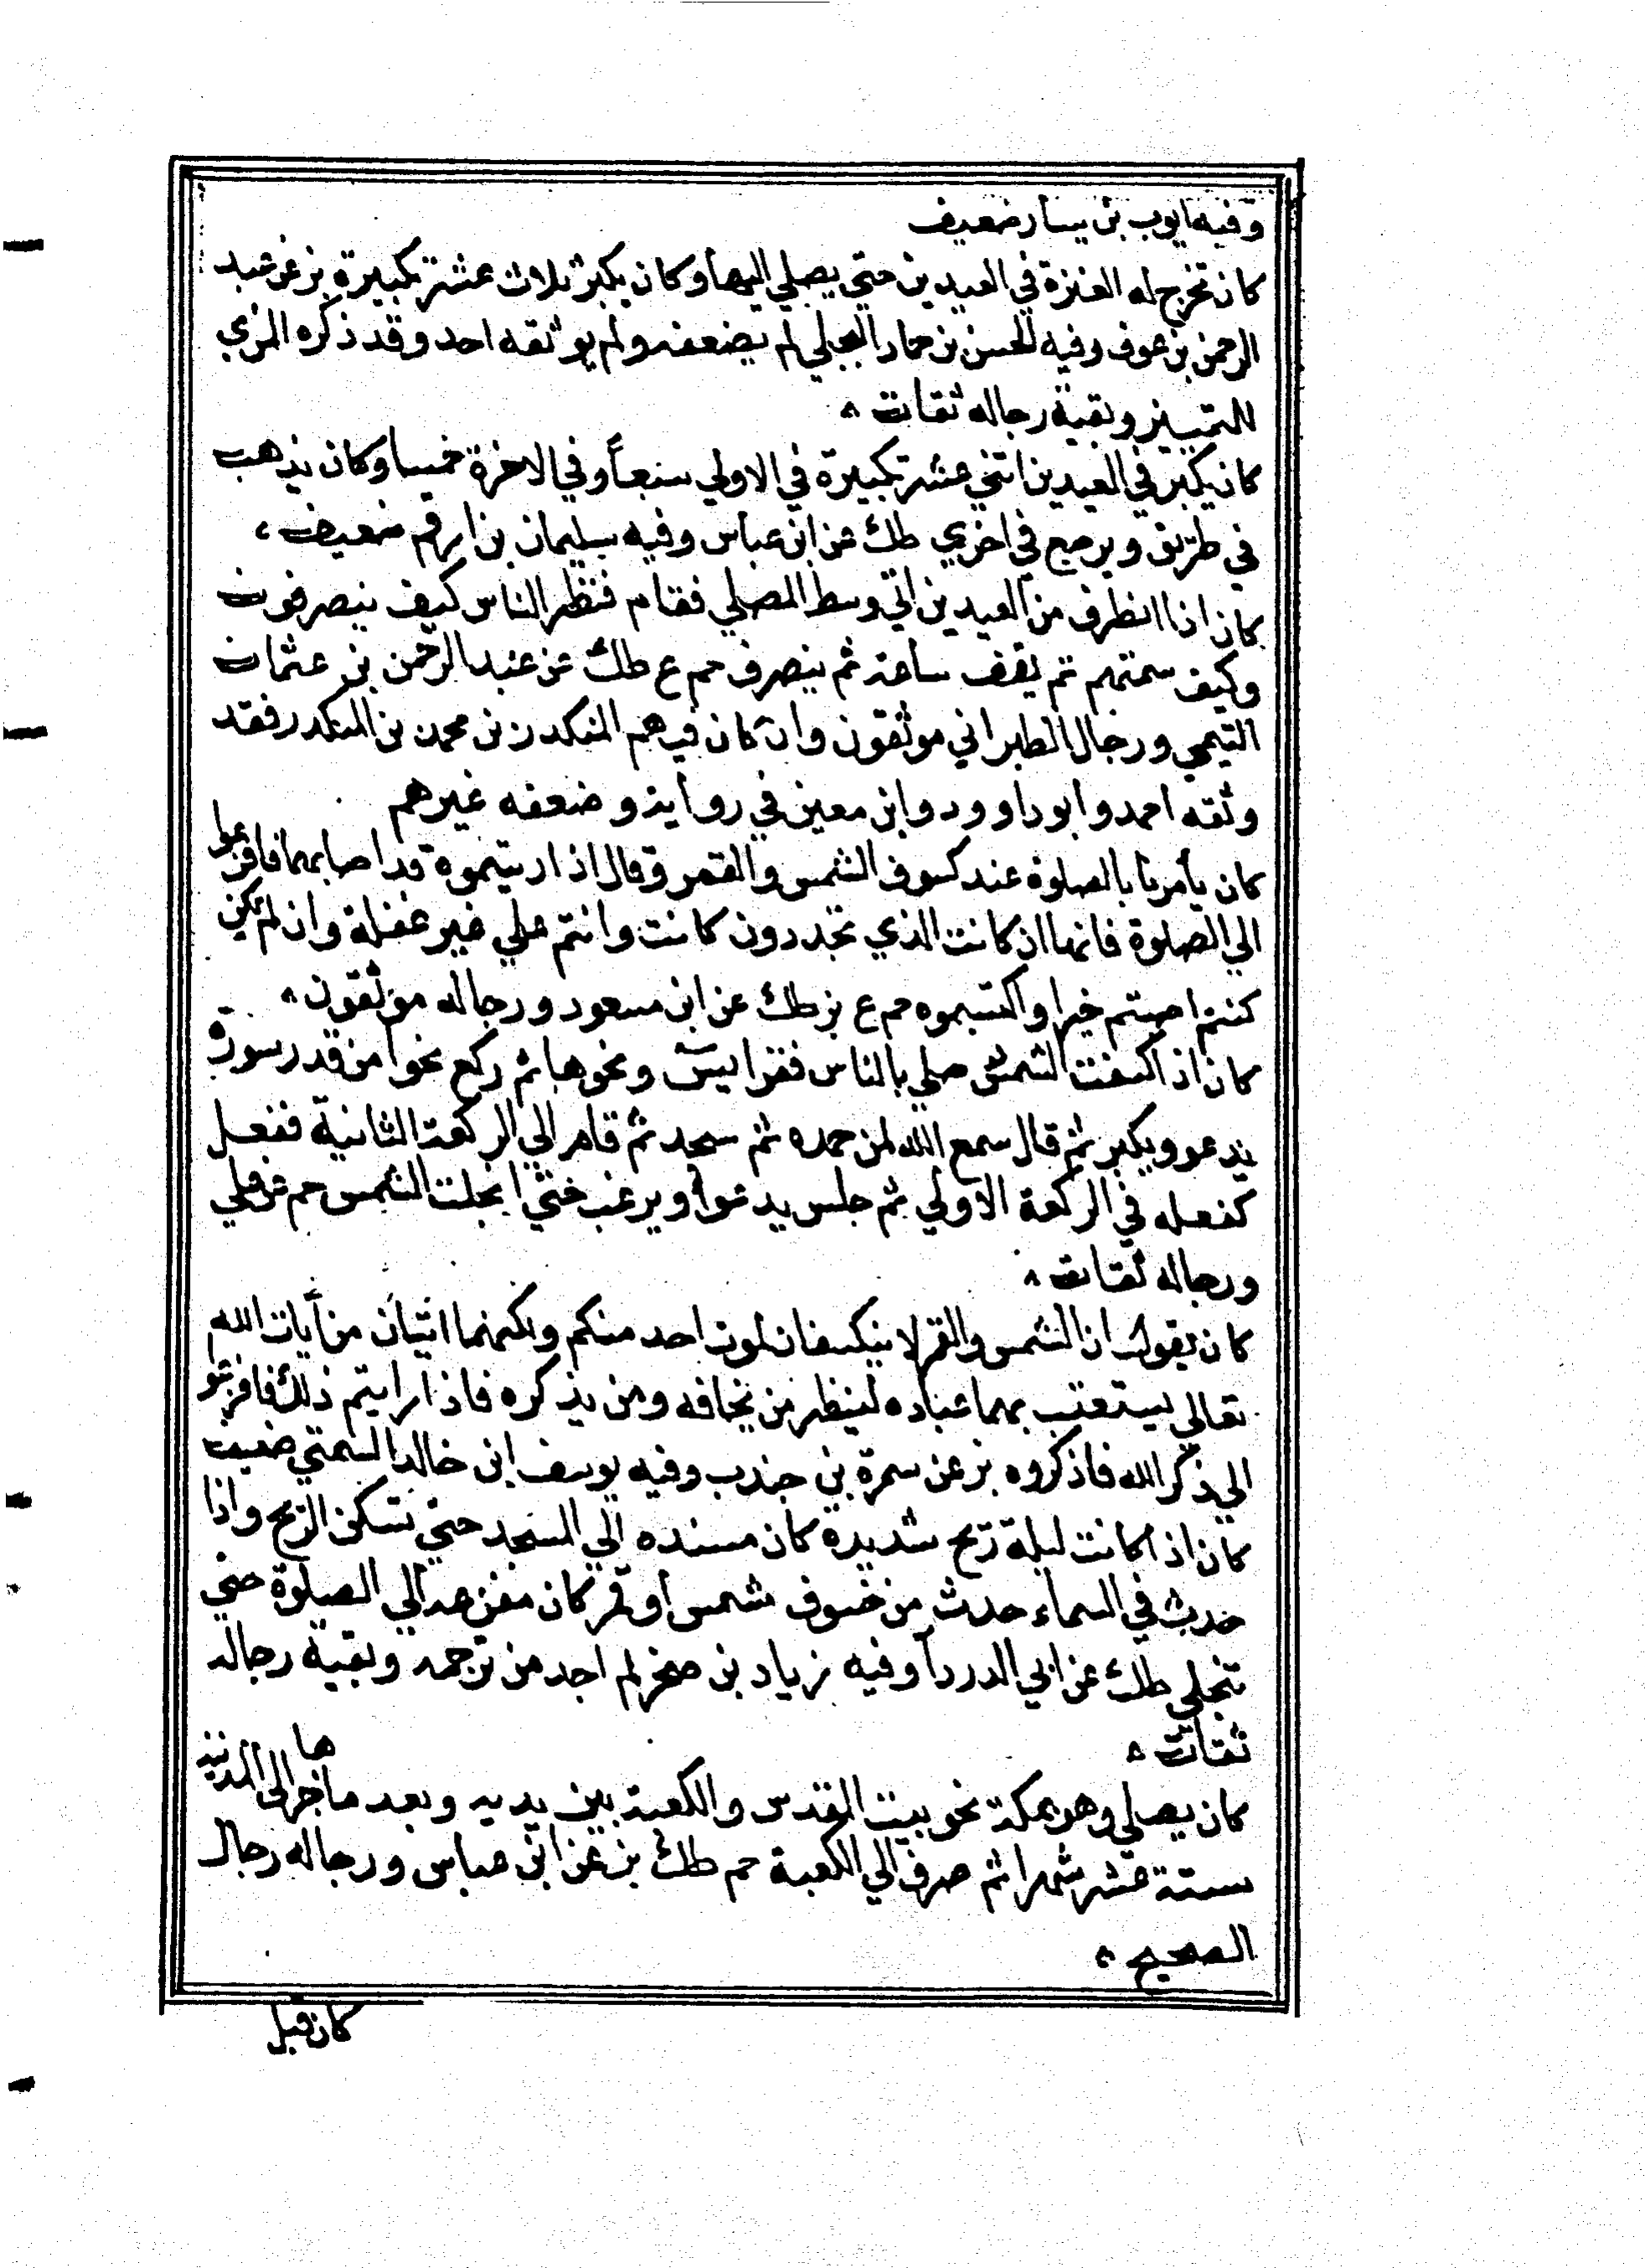 وفيه ايوب بن يسار ضعيف
كان تخرج له العنزة في العيدين حتي يصلي اليها وكان يكبر ثلاث عشرة تكبيرة بز عن عبد
الرحمن بن عوف وفيه الحسن بن حماد البجلي لم يضعفه ولم يوثقه احد وقد ذكره المزي
للتمييز وبقية رجاله ثقات
كان يكبر في العيدين اثنتي عشرة تكبيرة في الاولي سبعاً وفي الاخرة خمسا وكان يذهب
في طريق ويرجع في اخري طك عن ابن عباس وفيه سليمان بن ارقم ضعيف
كان اذا انطرف من العيدين اتي وسط المصلي فقام فنظر الناس كيف ينصرفون
وكيف سمتهم ثم يقف ساعة ثم ينصرف حم ع طك عن عبد الرحمن بن عثمان
التيمي ورجال الطبراني موثقون وان كان فيهم المنكدر بن محمد بن المنكدر فقد
وثقه احمد وابو داوود وابن معين في رواية وضعفه غيرهم
كان يأمرنا بالصلوة عند كسوف الشمس والقمر وقال اذا رييتموه قد اصابهما فافزعوا
الي الصلوة فانها ان كانت الذي تحذرون كانت وانتم علي غير غفلة وان لم تكن
كنتم اصبتم خيرا واكتسبموه حم ع بز طك عن ابن مسعود ورجاله موثقون
كان اذا كسفت الشمس صلي بالناس فقرا يس ونحوها ثم ركع نحوا من قدر سورة
يدعو ويكبر ثم قال سمع الله لمن حمده ثم سجد ثم قام الي الركعة الثانية ففعل
كفعله في الركعة الاولي ثم جلس يدعوا ويرغب حتي انجلت الشمس حم عن علي
ورجاله ثقات
كان يقول ان الشمس والقمر لا ينكسفان لموت احد منكم ولكنهما ايتان من آيات الله
تعالي يستعتب بهما عباده لينظر من يخافه ومن يذكره فاذا رايتم ذلك فافزعو
الي ذكر الله فاذكروه بز عن سمرة بن جندب وفيه يوسف ابن خالد السمتي ضعيف
كان اذا كانت ليلة ريح شديدة كان مسنده الي المسجد حتي تسكن الريح واذا
حدث في السماء حدث من خسوف شمس أو قمر كان مفزعه الي الصلوة حتي
تنجلي طك عن ابي الدردآ وفيه زياد بن صخر لم اجد من ترجمه وبقية رجاله
ثقات
كان يصلي وهو بمكة نحو بيت المقدس والكعبة بين يديه وبعد ما هاجر الي المدينة
ستة عشر شهرا ثم صرف الي الكعبة حم طك بز عن ابن عباس ورجاله رجال
الصحيح
كان قبل